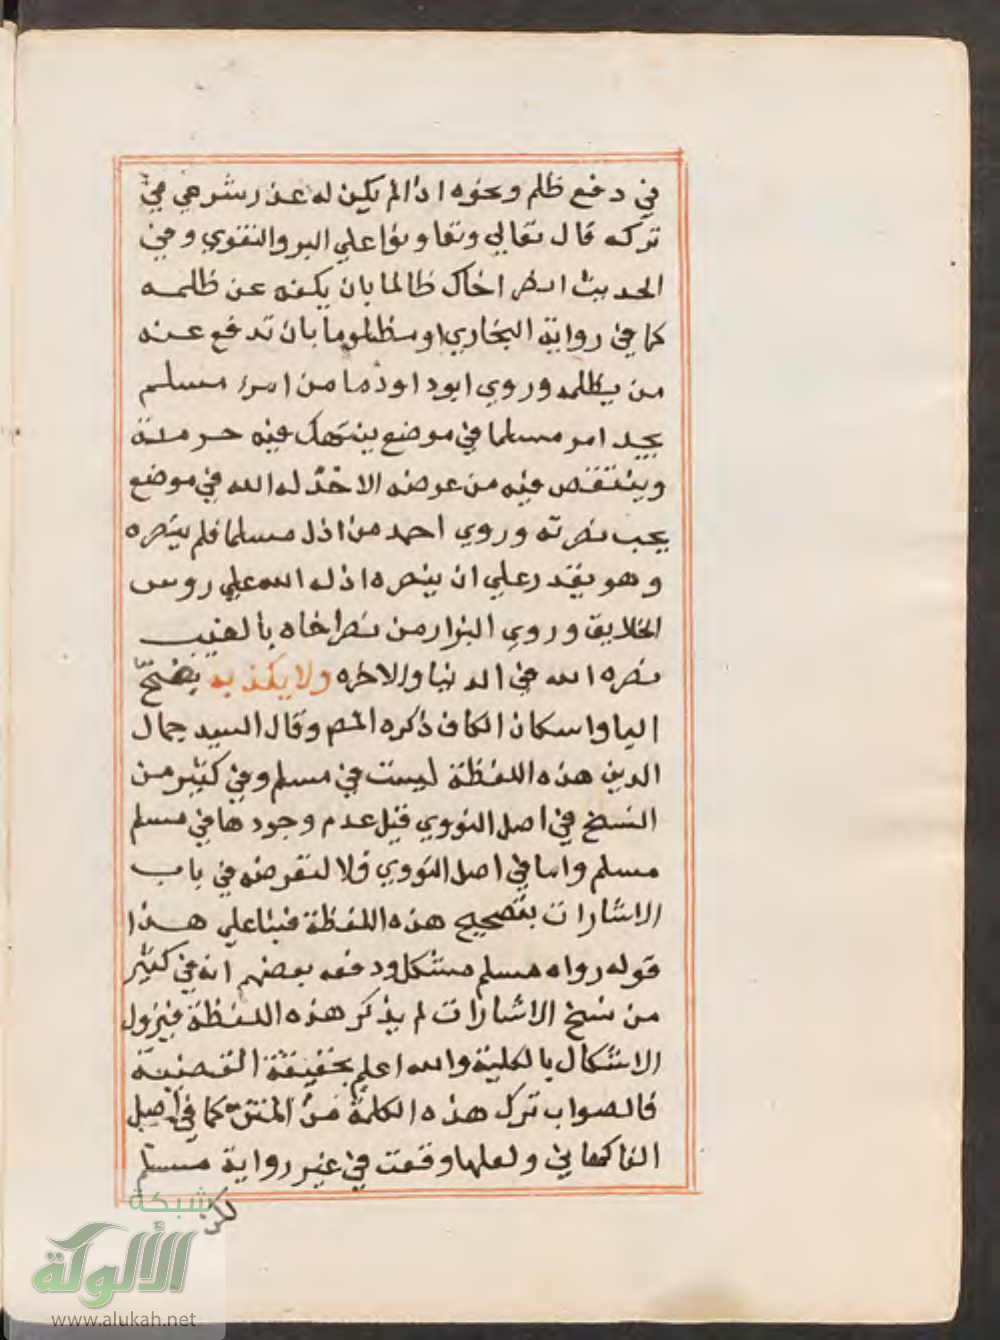 في دفع ظلم ونحوه اذا لم يكن له عذر شرعي في
تركه قال تعالي وتعاونوا علي البر والتقوي وفي
الحديث انصر اخاك ظالما بان يكفه عن ظلمه
كما في رواية البخاري او مظلوما بان تدفع عنه
من يظلمه وروي ابوداود ما من امرء مسلم
يخذل امر مسلما في موضع ينتهك فيه حرمته
وينتقص فيه من عرضه الا خذله الله في موضع
يحب نصرته وروي احمد من اذل مسلما فلم ينصره
وهو يقدر علي ان ينصره اذله الله علي روس
الخلايق وروي البزار من نصر اخاه بالغيب
نصره الله في الدنيا والاخره ولا يكذبه بفتح
اليا واسكان الكاف ذكره المص وقال السيد جمال
الدين هذه اللفظة ليست في مسلم وفي كثير من
النسخ في اصل النووي قيل عدم وجودها في مسلم
مسلم واما في اصل النووي فلا لتعرضه في باب
الاشارات بتصحيح هذه اللفظة فبنا علي هذا
قوله رواه مسلم مشكل ودفعه بعضهم انه في كثير
من نسخ الاشارات لم يذكر هذه اللفظة فيزول
الاشكال بالكلية والله اعلم بحقيقة القضية
فالصواب ترك هذه الكلمة من المتن كما في اصل
الفاكهاني ولعلها وقعت في غير رواية مسلم
لكن
شبكة
الألوكة
www.alukah.net